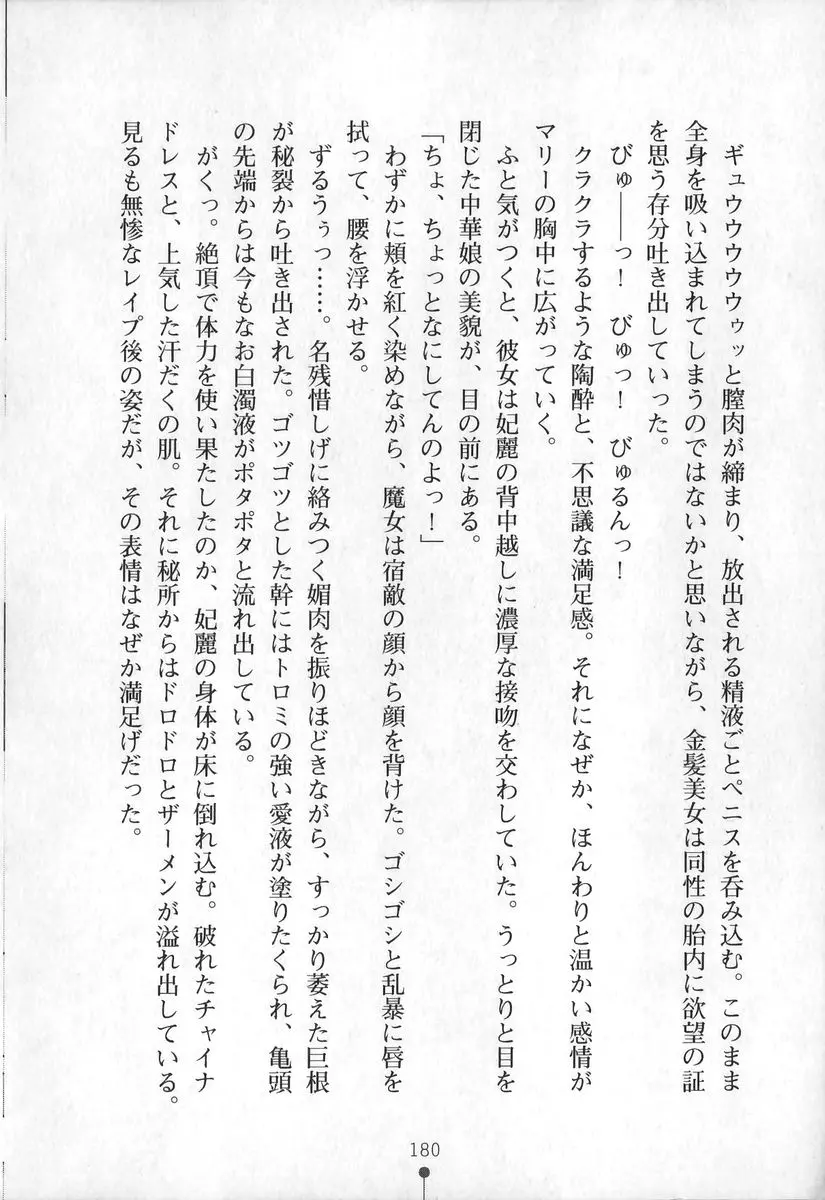 ギュウウウウウゥッと膣肉が締まり、放出される精液ごとペニスを呑み込む。このまま
全身を吸い込まれてしまうのではないかと思いながら、金髪美女は同性の胎内に欲望の証
を思う存分吐き出していった。
びゅ――っ！　びゅっ！　びゅるんっ！
クラクラするような陶酔と、不思議な満足感。それになぜか、ほんわりと温かい感情が
マリーの胸中に広がっていく。
ふと気がつくと、彼女は妃麗の背中越しに濃厚な接吻を交わしていた。うっとりと目を
閉じた中華娘の美貌が、目の前にある。
「ちょ、ちょっとなにしてんのよっ！」
わずかに頬を紅く染めながら、魔女は宿敵の顔から顔を背けた。ゴシゴシと乱暴に唇を
拭って、腰を浮かせる。
ずるうぅっ……。名残惜しげに絡みつく媚肉を振りほどきながら、すっかり萎えた巨根
が秘裂から吐き出された。ゴツゴツとした幹にはトロミの強い愛液が塗りたくられ、亀頭
の先端からは今もなお白濁液がポタポタと流れ出している。
がくっ。絶頂で体力を使い果たしたのか、妃麗の身体が床に倒れ込む。破れたチャイナ
ドレスと、上気した汗だくの肌。それに秘所からはドロドロとザーメンが溢れ出している。
見るも無惨なレイプ後の姿だが、その表情はなぜか満足げだった。
180